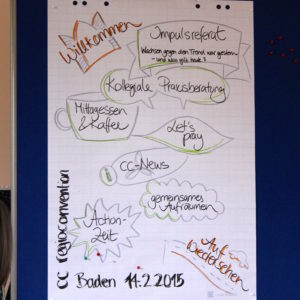 Willkommen
Impulsreferat
Wachsen gegen den Trend war gestern
- und was gilt heute?
Kollegiale Praxisberatung
Mittagessen
& Kaffee
Let's
play
CC-News
gemeinsames
Aufräumen
Action-
Zeit
Auf
Wiedersehen
CC regioconvention
Baden 14.2.2015